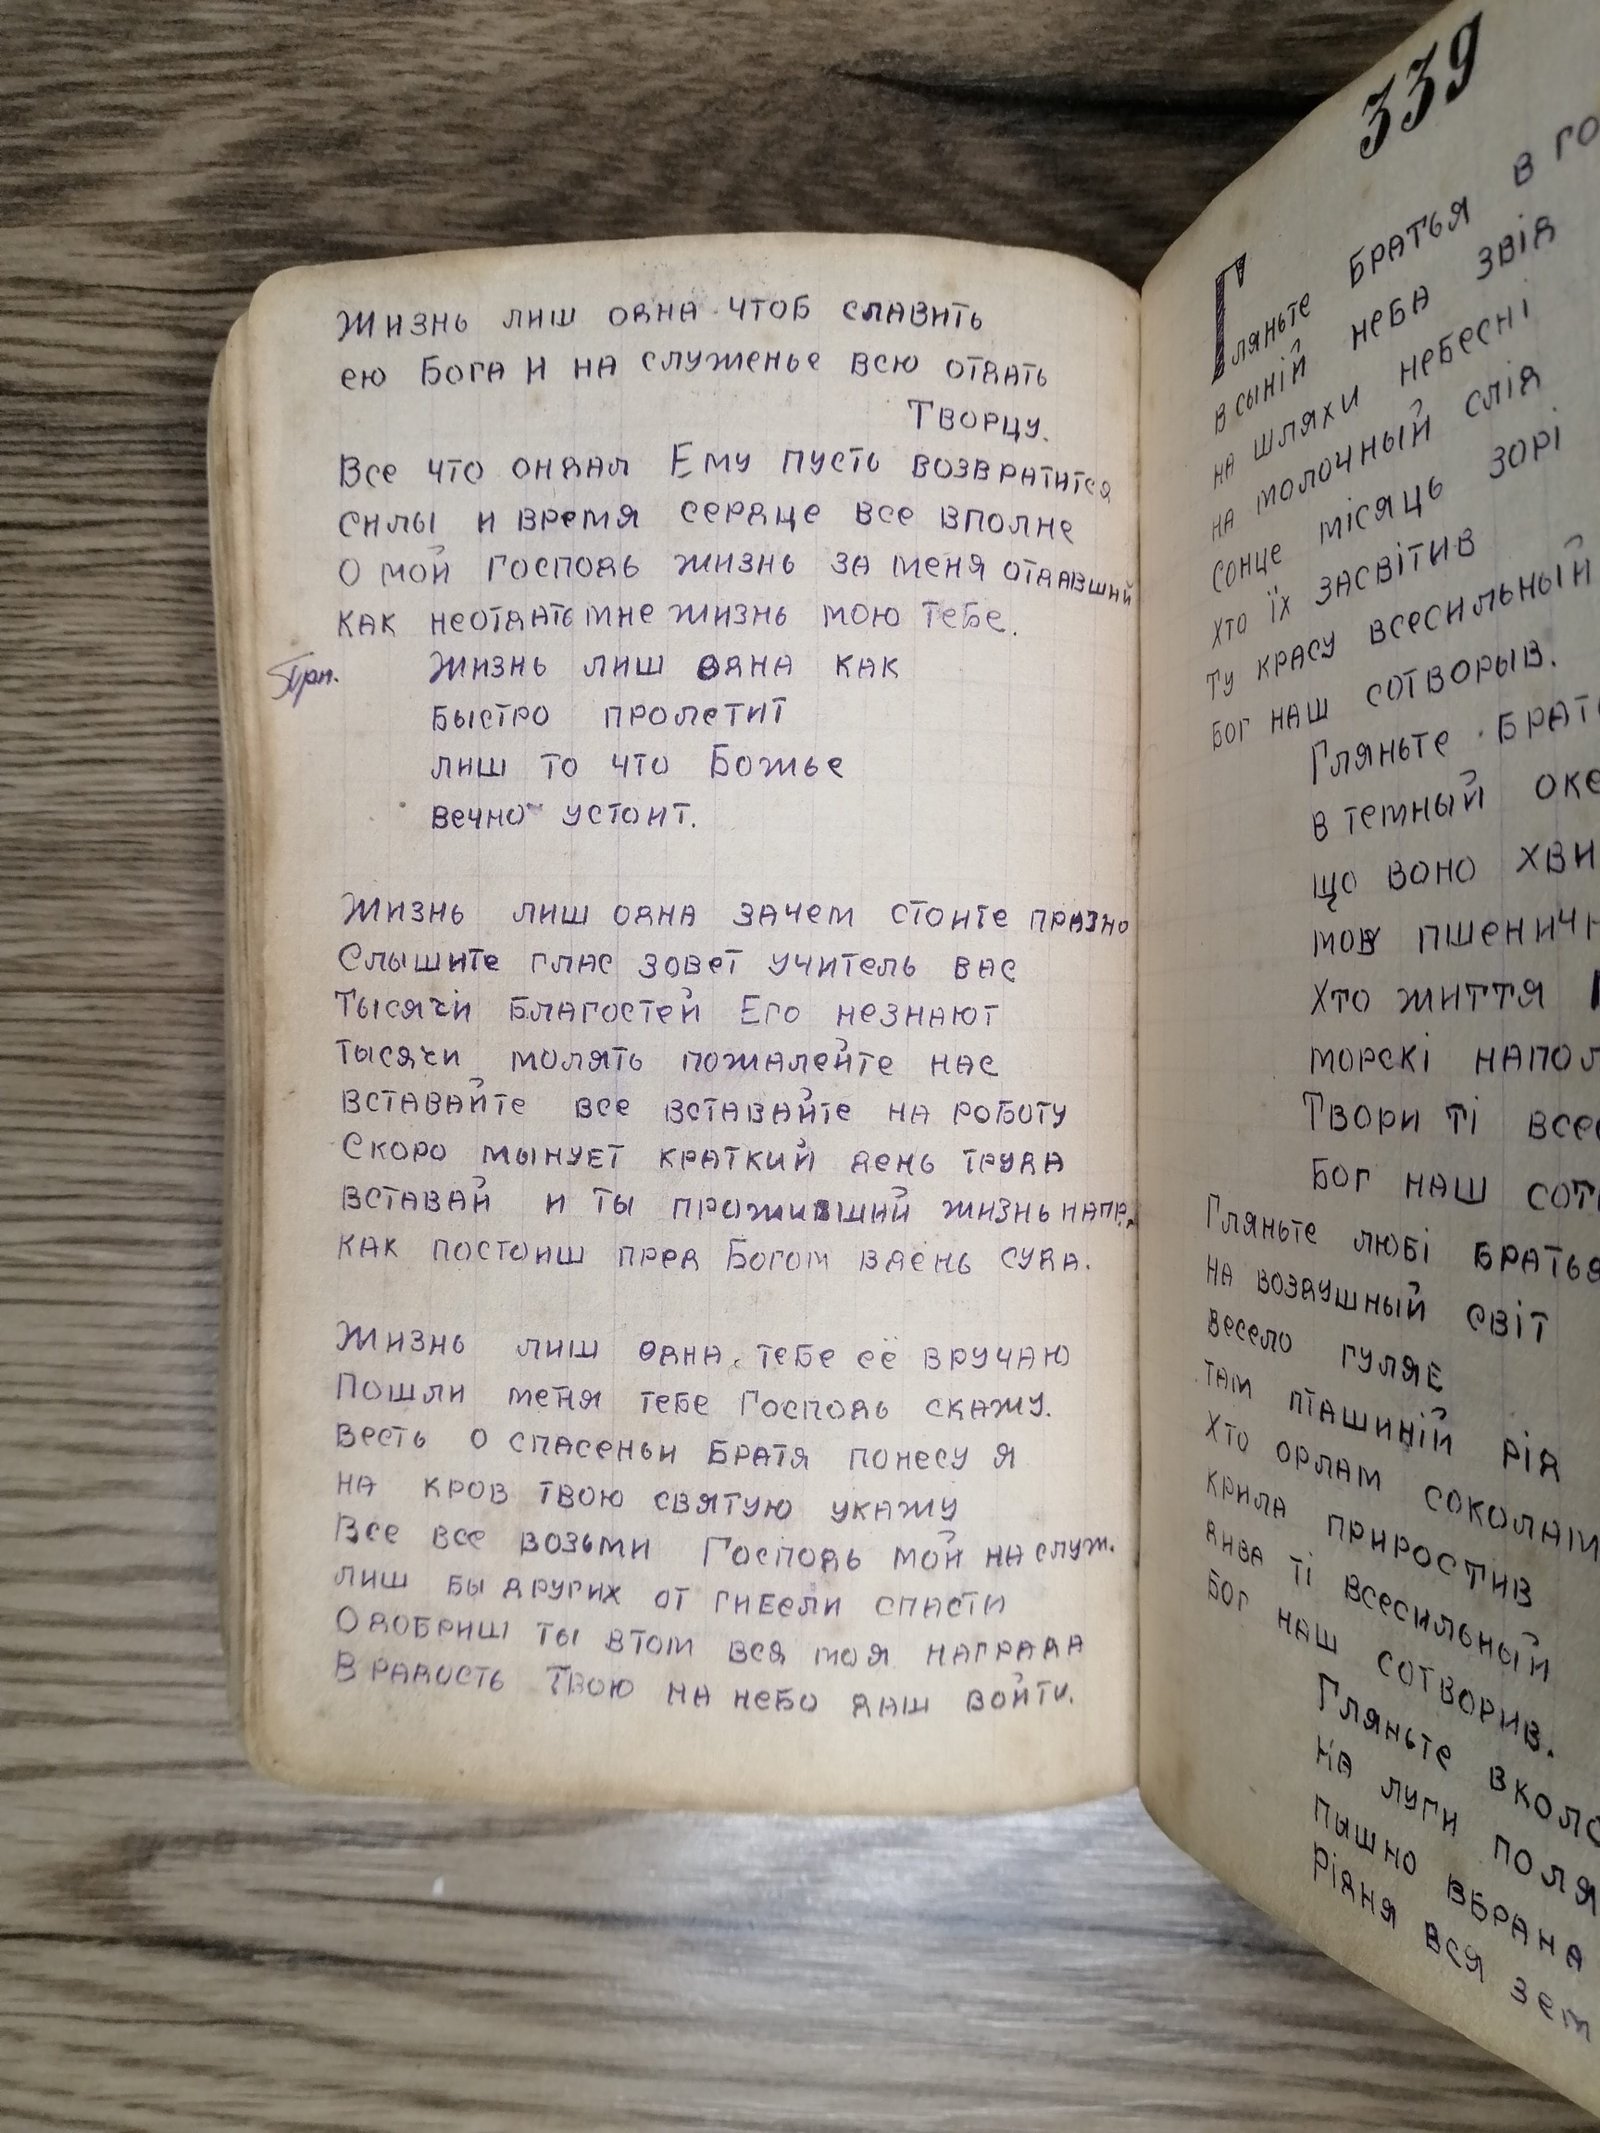 Жизнь лиш одна чтоб славить
ею Бога и на служенье всю отдать
Творцу.
Все что ондал Ему пусть возвратится
силы и время сердце все вполне
О мой господь жизнь за меня отдавший
как неотдать мне жизнь мою тебе.
Жизнь лиш одна как
быстро пролетит
лиш то что Божье
вечно устоит.
Жизнь лиш одна зачем стоите празно
Слышите глас зовет учитель вас
Тысячи благостей Его незнают
тысячи молять пожалейте нас
вставайте все вставайте на роботу
Скоро мынует краткий день труда
вставай и ты проживший жизнь напр.
как постоиш пред Богом вдень суда.
Жизнь лиш одна, тебе её вручаю
Пошли меня тебе Господь скажу.
Весть о спасеньи братя понесу я
на кров твою святую укажу
Все все возьми Господь мой на служ.
лиш бы других от гибели спасти
Одобриш ты втом вся моя награда
В радость Твою на небо даш войти.
339
Гляньте братья в го
в сыній неба звід
на шляхи небесні
на молочный слід
сонце місяць зорі
хто їх засвітив
ту красу всесильный
бог наш сотворыв.
Гляньте брат
в темный оке
що воно хви
мов пшенич
Хто життя
морскі напол
Твори ті все
Бог наш сот
Гляньте любі братья
на воздушный світ
весело гуляє
там пташиній рід
Хто орлам соколам
крила приростив
дива ті всесильный
бог наш сотворив.
Гляньте вколо
на луги поля
пышно вбрана
рідня вся зем